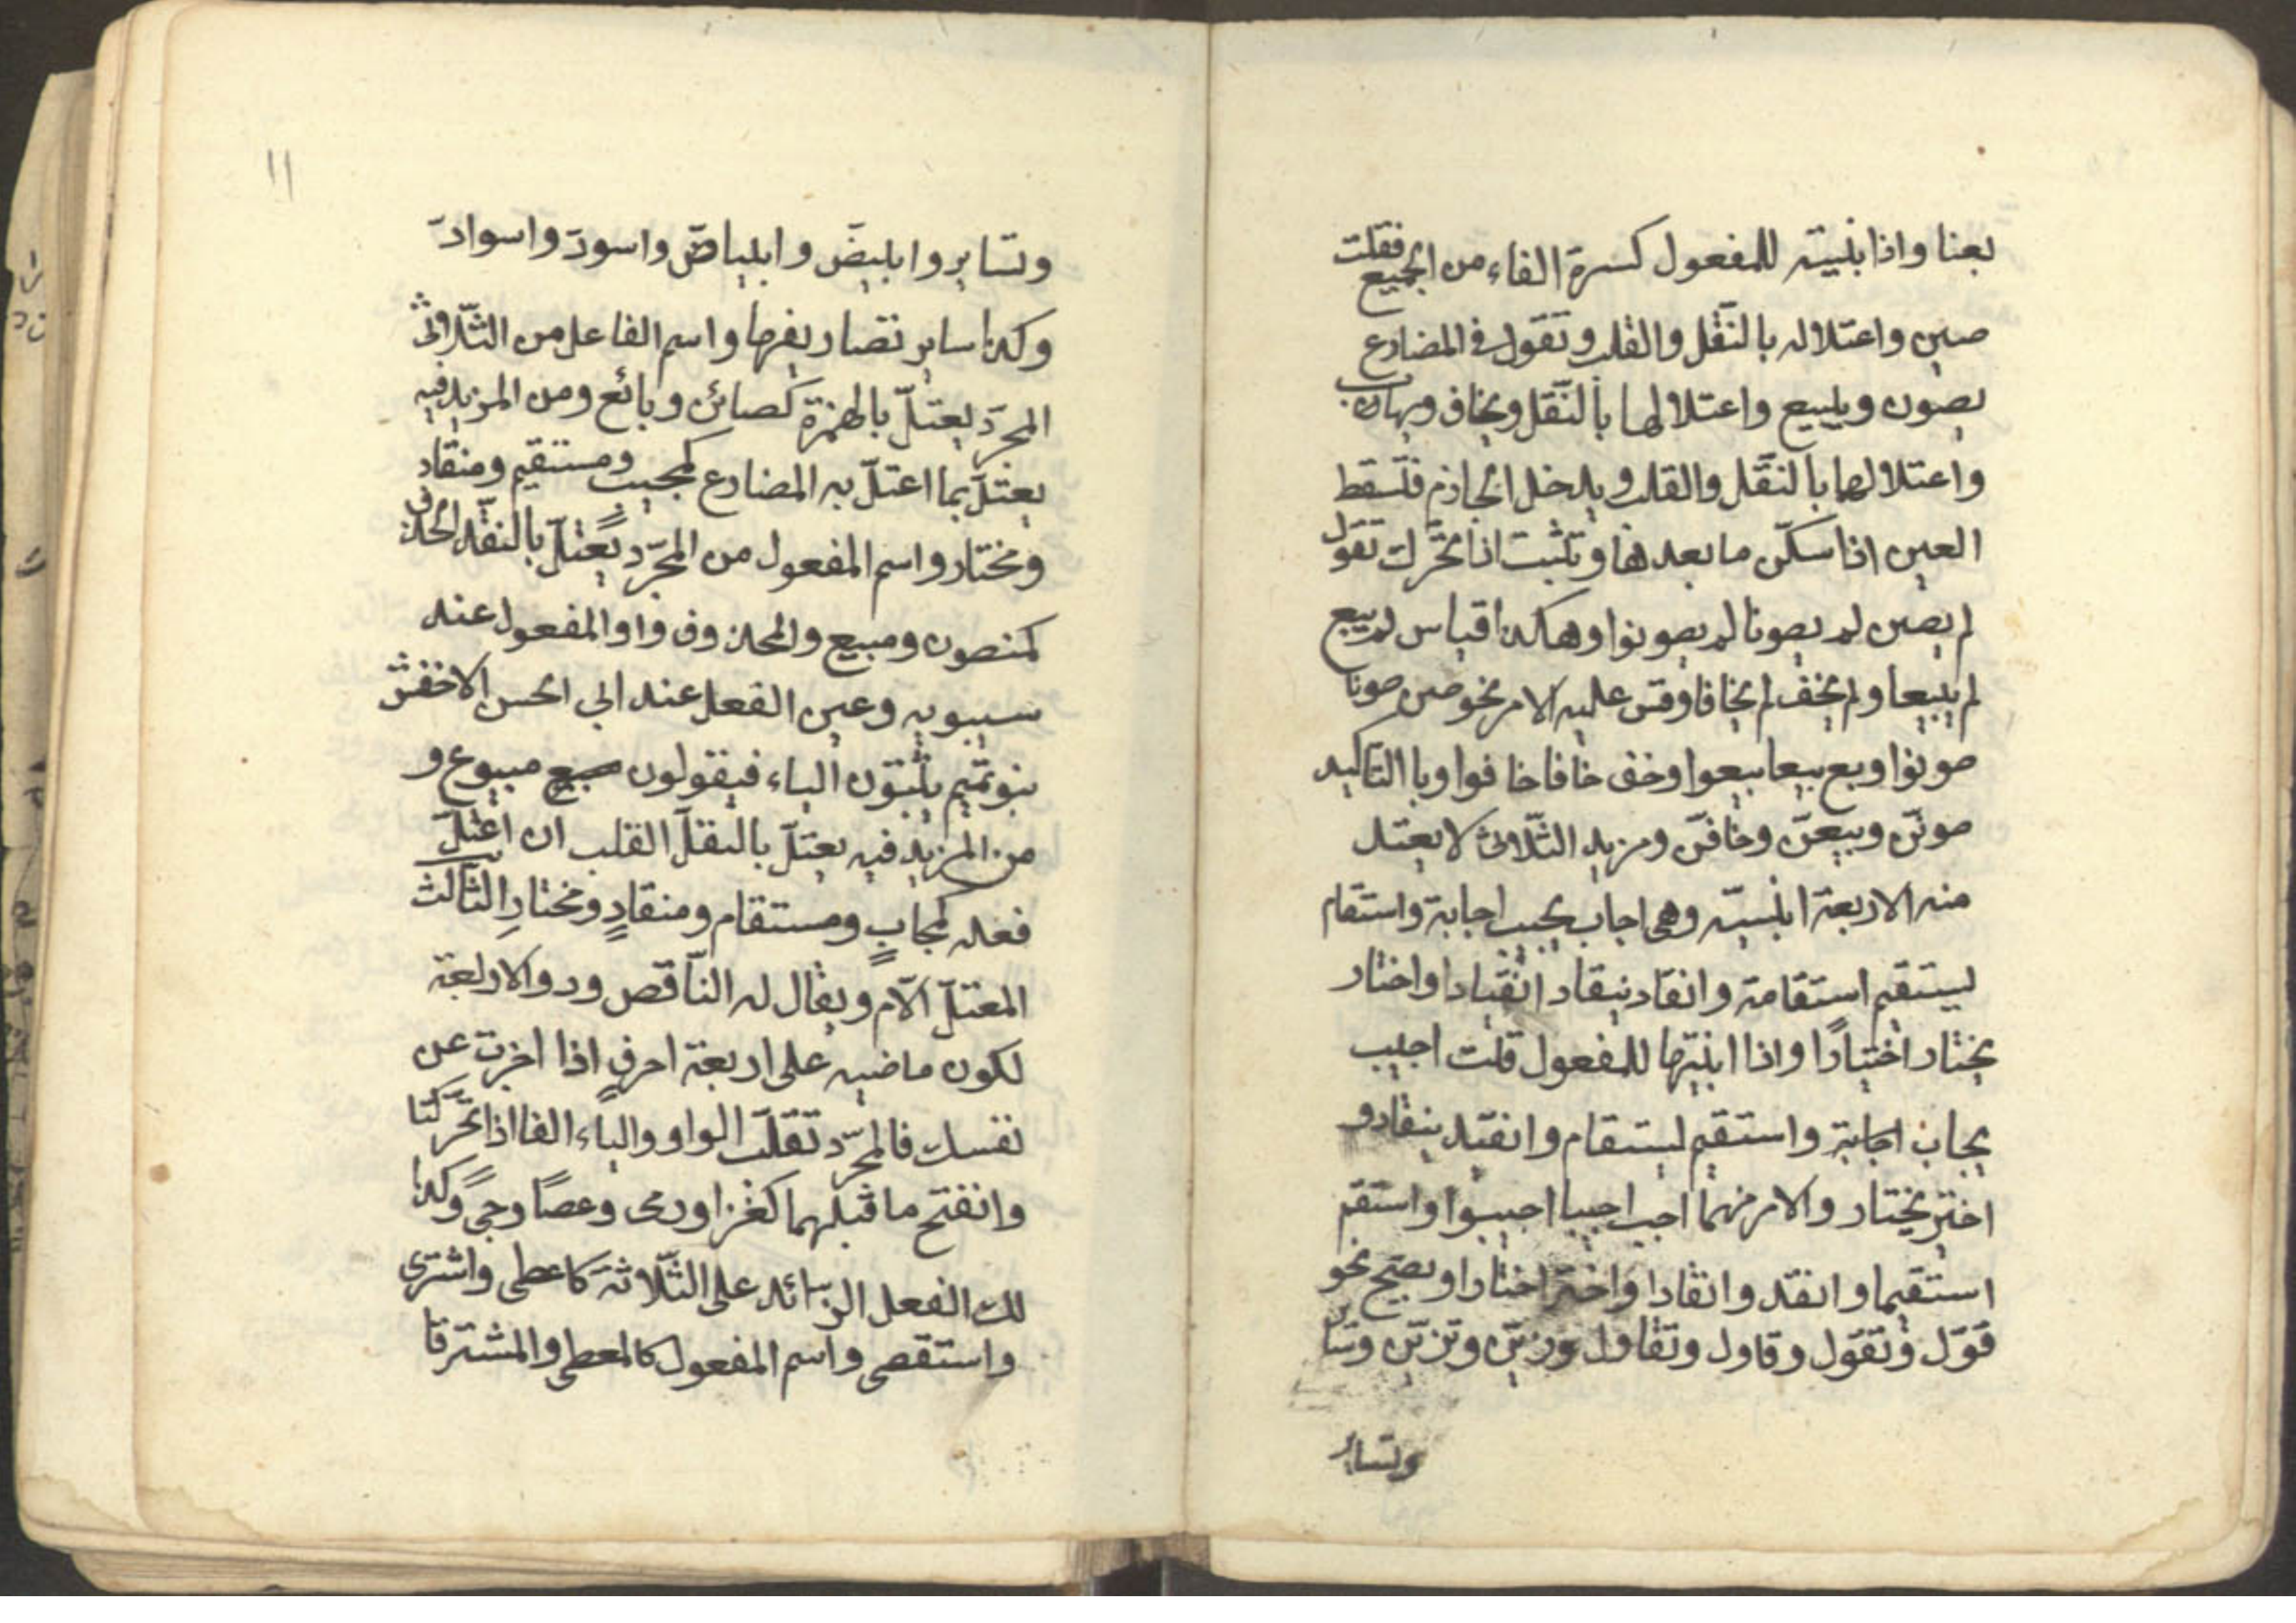 بعنا واذا بنيته للمفعول كسرة الفاء من الجميع فقلت
صين واعتلاله بالنّقل والقلب وتقول فى المضارع
يصون ويبيع واعتلالها بالنّقل ويخاف ويهاب
واعتلالهما بالنّقل والقلب ويدخل الجازم فتسقط
العين اذا سكّن ما بعدها وتثبت اذا تحرّك تقول
لم يصن لم يصونا لم يصونوا وهكذا قياس لم يبيع
لم يبيعا ولم يخف لم يخافا وقس عليه الامر نحو صن صونا
صونوا وبع بيعا بيعوا وخف خافا خافوا وبا التاكيد
صونّن وبيعنّ وخافنّ ومزيد الثّلاثى لا يعتل
منه الا اربعة ابنسيه وهى اجاب يجيب اجابة واستقام
يستقيم استقامة وانقاد ينقاد انقيادا واختار
يختار اختيارًا واذا ابنيتها للمفعول قلت اجيب
يجاب اجابة واستقيم يستقام وانقيد ينقاد و
اختير يختار والامر منهما اجب اجيبا اجيبوا واستقم
استقيما وانقد وانقادا واختر اختارا ويصحّ نحو
قوّل وتقوّل وقاول وتقاول وزيّن وتزيّن وسا
وتساير
١١
وتساير وابيضّ وابياضّ واسودّ واسوادّ
وكذا ساير تصاريفها واسم الفاعل من الثّلاثى
المجرّد يعتلّ بالهمزة كصائن وبائع ومن المزيد فيه
يعتلّ بما اعتلّ به المضارع كمجيب ومستقيم ومنقاد
ومختار واسم المفعول من المجرّد يعتلّ بالنقل الحذف
كمنصون ومبيع والمحذوف واو المفعول عند
سيبويه وعين الفعل عند ابي الحسن الاخفش
بنو تميم يثبتون الياء فيقولون مبيع مبيوع و
من المزيد فيه يعتلّ بالنقل القلب ان اعتلّ
فعله كمجابٍ ومستقام ومنقادٍ ومختارِ الثالث
المعتلّ الّام ويقال له النّاقص ودو الاربعة
لكون ماضيه على اربعة احرفٍ اذا اخبرت عن
نفسك فالمجرّد تقلب الواو والياء الفا اذا تحرّكتا
وانفتح ما قبلهما كغزا ورمى وعصًا ورحىً وكذا
لك الفعل الزّائد على الثّلاثة كاعطى واشترى
واستقصى واسم المفعول كالمعطى والمشترقا